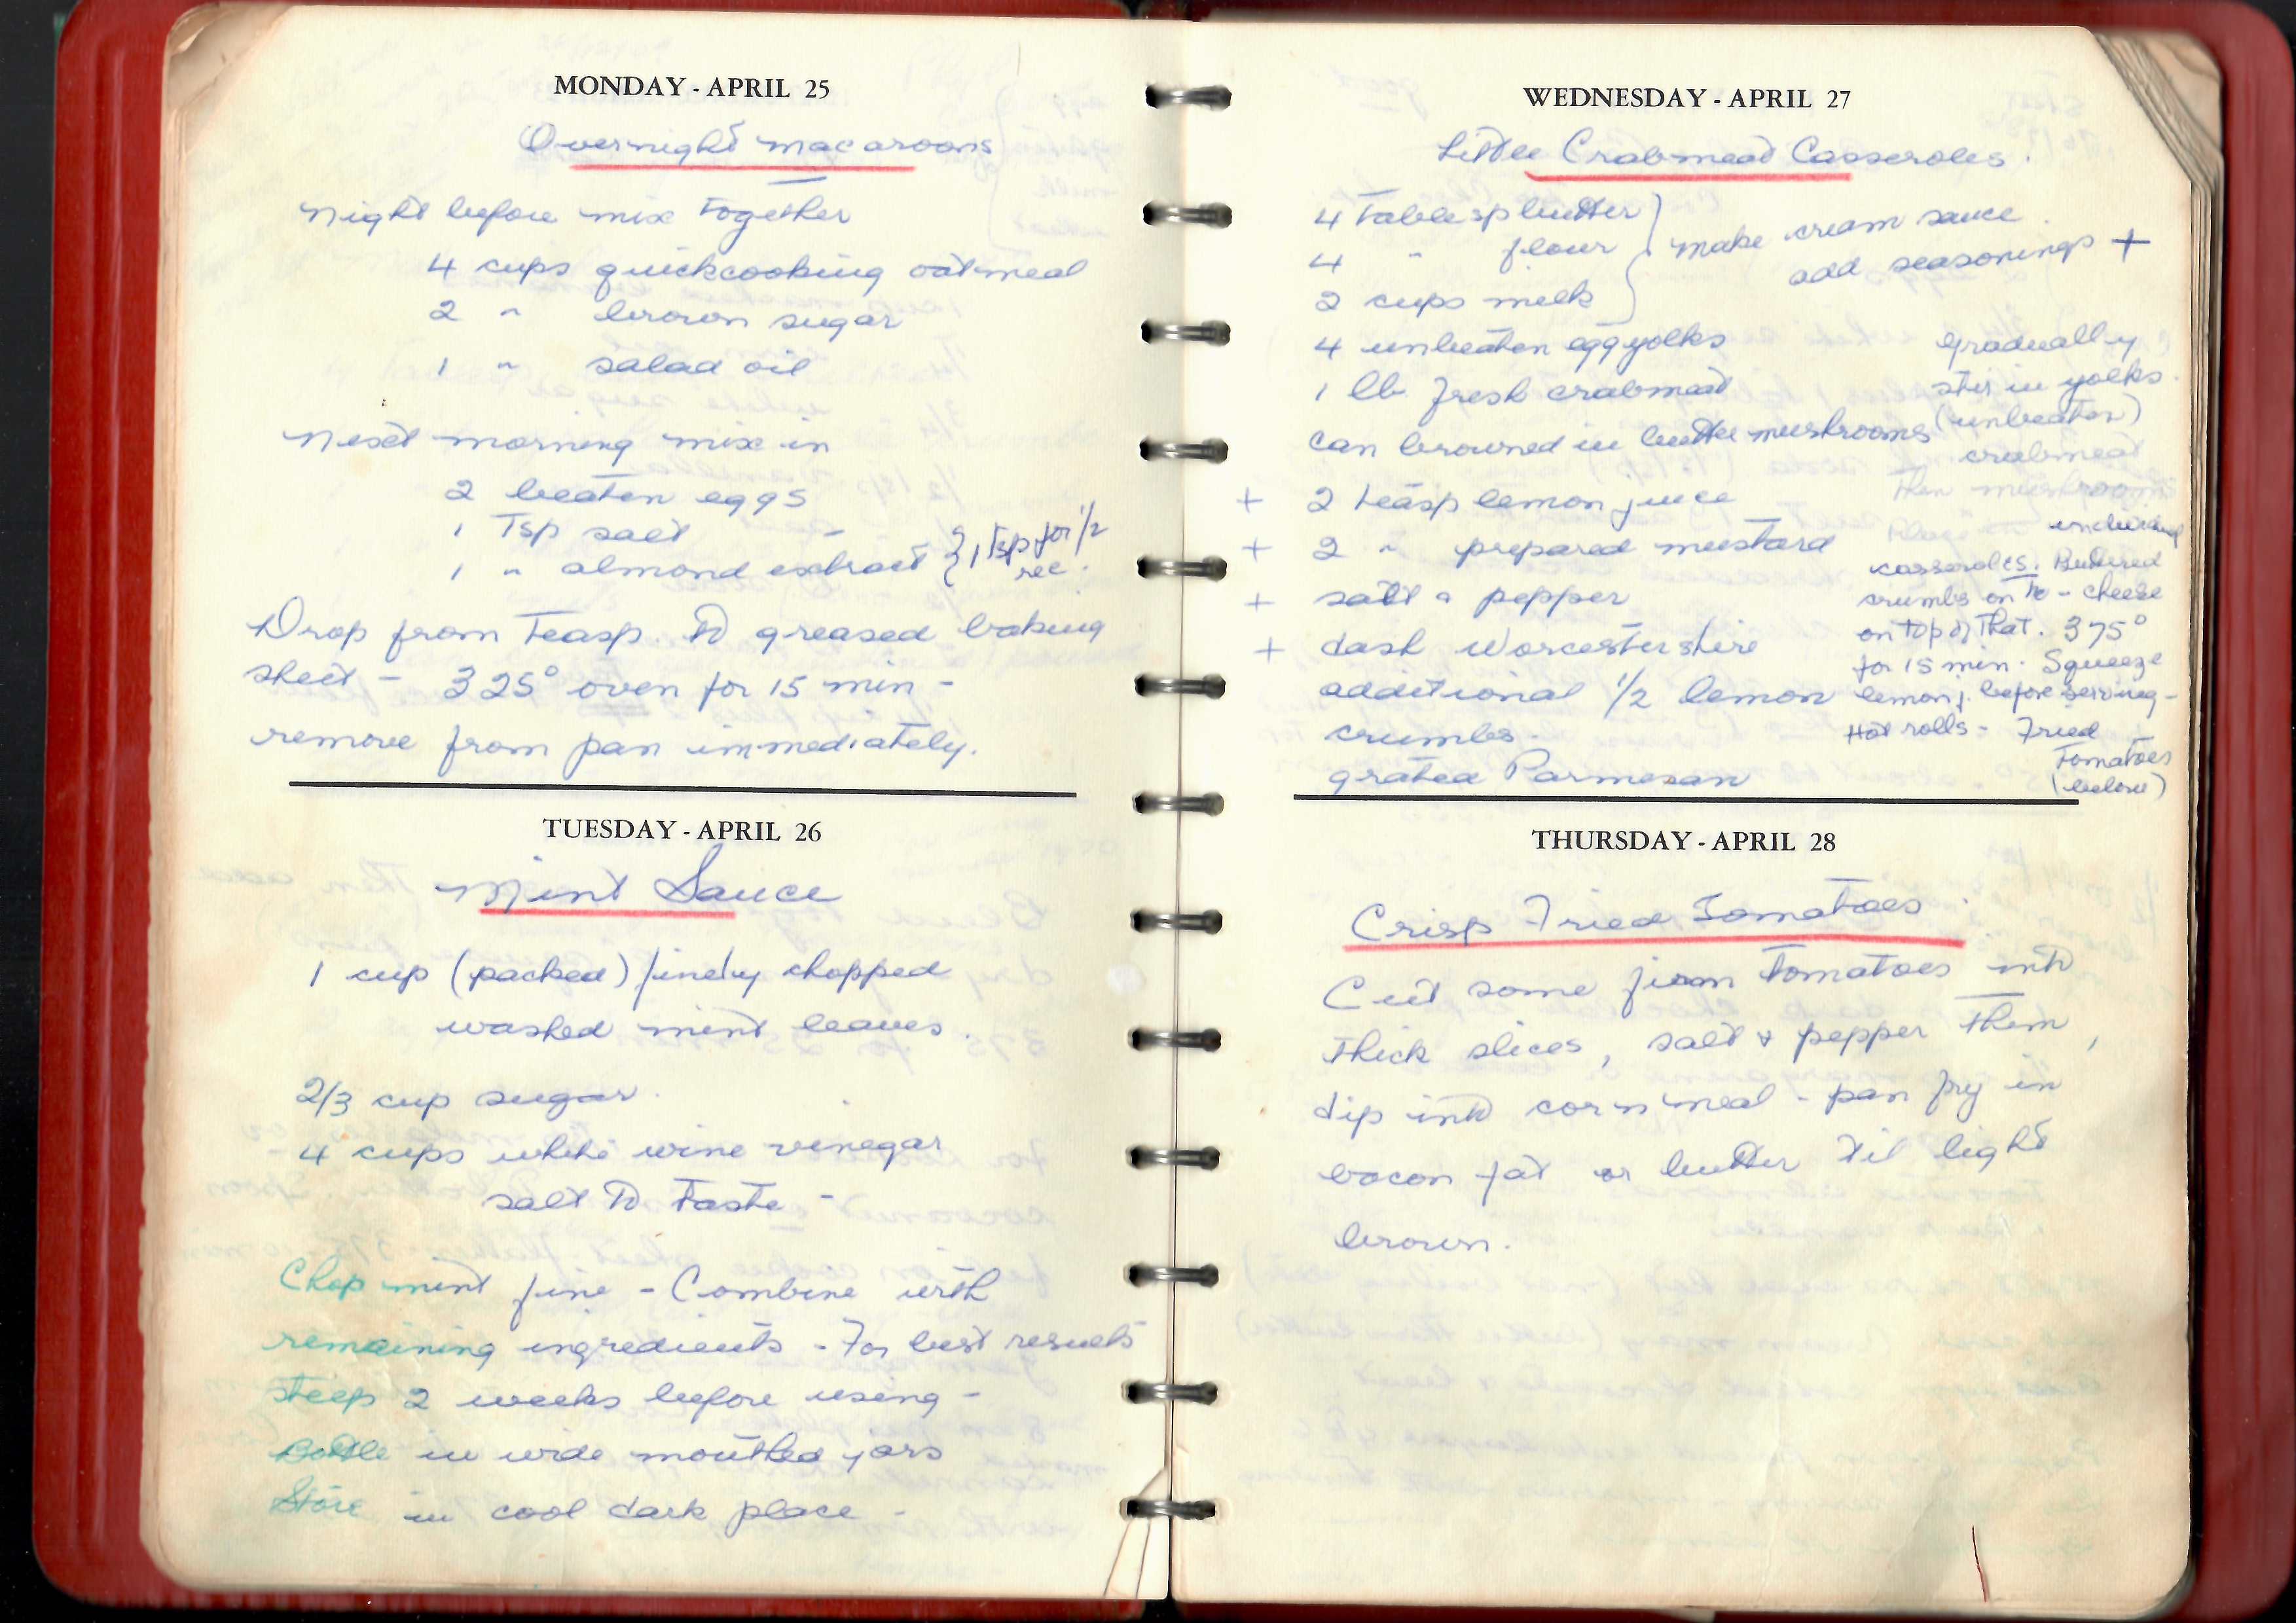 MONDAY - APRIL 25
Overnight macaroons
Night before mix together
4 cups quickcooking oatmeal
2 " brown sugar
1 " salad oil
Next morning mix in
2 beaten eggs
1 Tsp salt
1 " almond extract { 1 Tsp for 1/2
rec.
Drop from Teasp. to greased baking
sheet - 325° oven for 15 min -
remove from pan immediately.
TUESDAY - APRIL 26
Mint Sauce
1 cup (packed) finely chopped
washed mint leaves.
2/3 cup sugar.
4 cups white wine vinegar
salt to taste -
Chop mint fine - Combine with
remaining ingredients - For best results
steep 2 weeks before using -
Bottle in wide mouthed jars
Store in cool dark place -
WEDNESDAY - APRIL 27
Little Crabmeat Casseroles.
4 Table sp butter
4 " flour
2 cups milk
} make cream sauce.
add seasonings +
4 unbeaten egg yolks
1 lb. fresh crabmeat
can browned in butter mushrooms
+ 2 teasp lemon juice
+ 2 " prepared mustard
+ salt & pepper
+ dash Worcestershire
additional 1/2 lemon
crumbs.
grated Parmesan
gradually
stir in yolks.
(unbeaten)
crabmeat
Then mushrooms
Place in individ
casseroles. Buttered
crumbs on to - cheese
on top of that. 375°
for 15 min. Squeeze
lemon j. before serving -
Hot rolls - Fried
Tomatoes
(below)
THURSDAY - APRIL 28
Crisp Fried Tomatoes.
Cut some firm tomatoes into
thick slices, salt & pepper them,
dip into cornmeal - pan fry in
bacon fat or butter til light
brown.